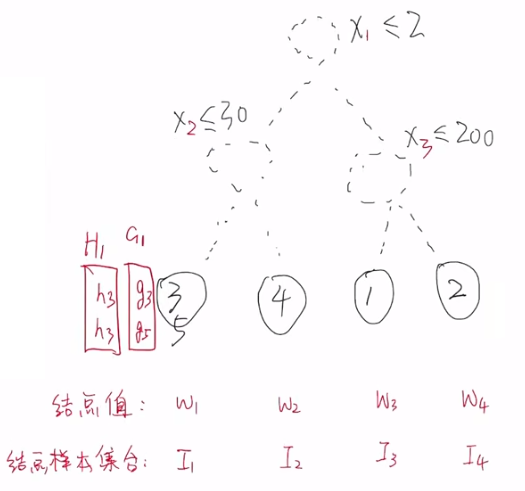 x₁ ≤ 2
x₂ ≤ 30
x₃ ≤ 200
H₁ G₁
h₃ g₃ 3 4 1 2
h₃ g₅ 5
结点值: W₁ W₂ W₃ W₄
结点样本集合: I₁ I₂ I₃ I₄